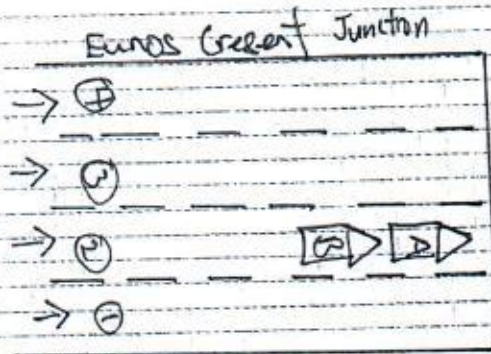 Eunos Crescent Junction
4
3
2 B A
1